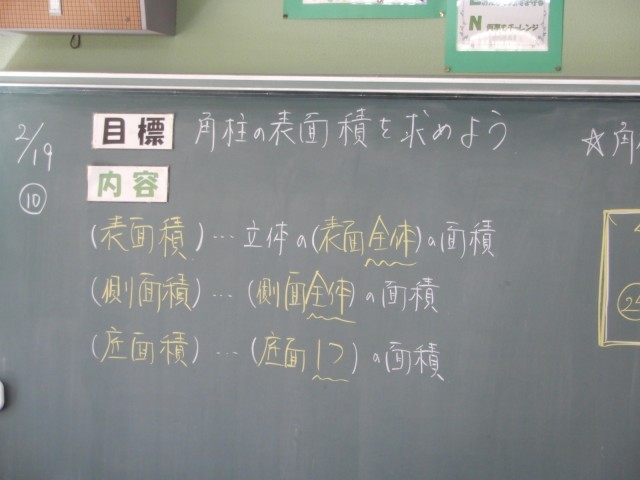 N 何事もチャレンジ
2/19
目標 角柱の表面積を求めよう
☆角
⑩
内容
(表面積)…立体の(表面全体)の面積
(側面積)…(側面全体)の面積
(底面積)…(底面1つ)の面積